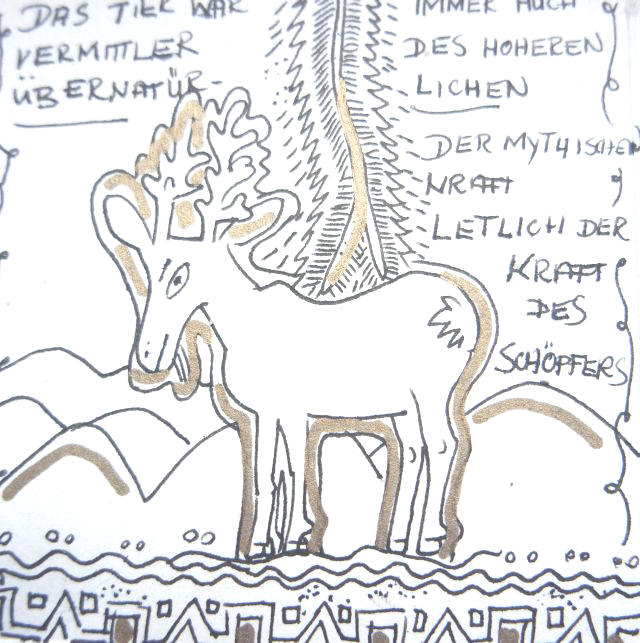 DAS TIER WAR
VERMITTLER
ÜBERNATÜR-
IMMER AUCH
DES HÖHEREN
LICHEN
DER MYTHISCHEN
KRAFT
LETLICH DER
KRAFT
DES
SCHÖPFERS